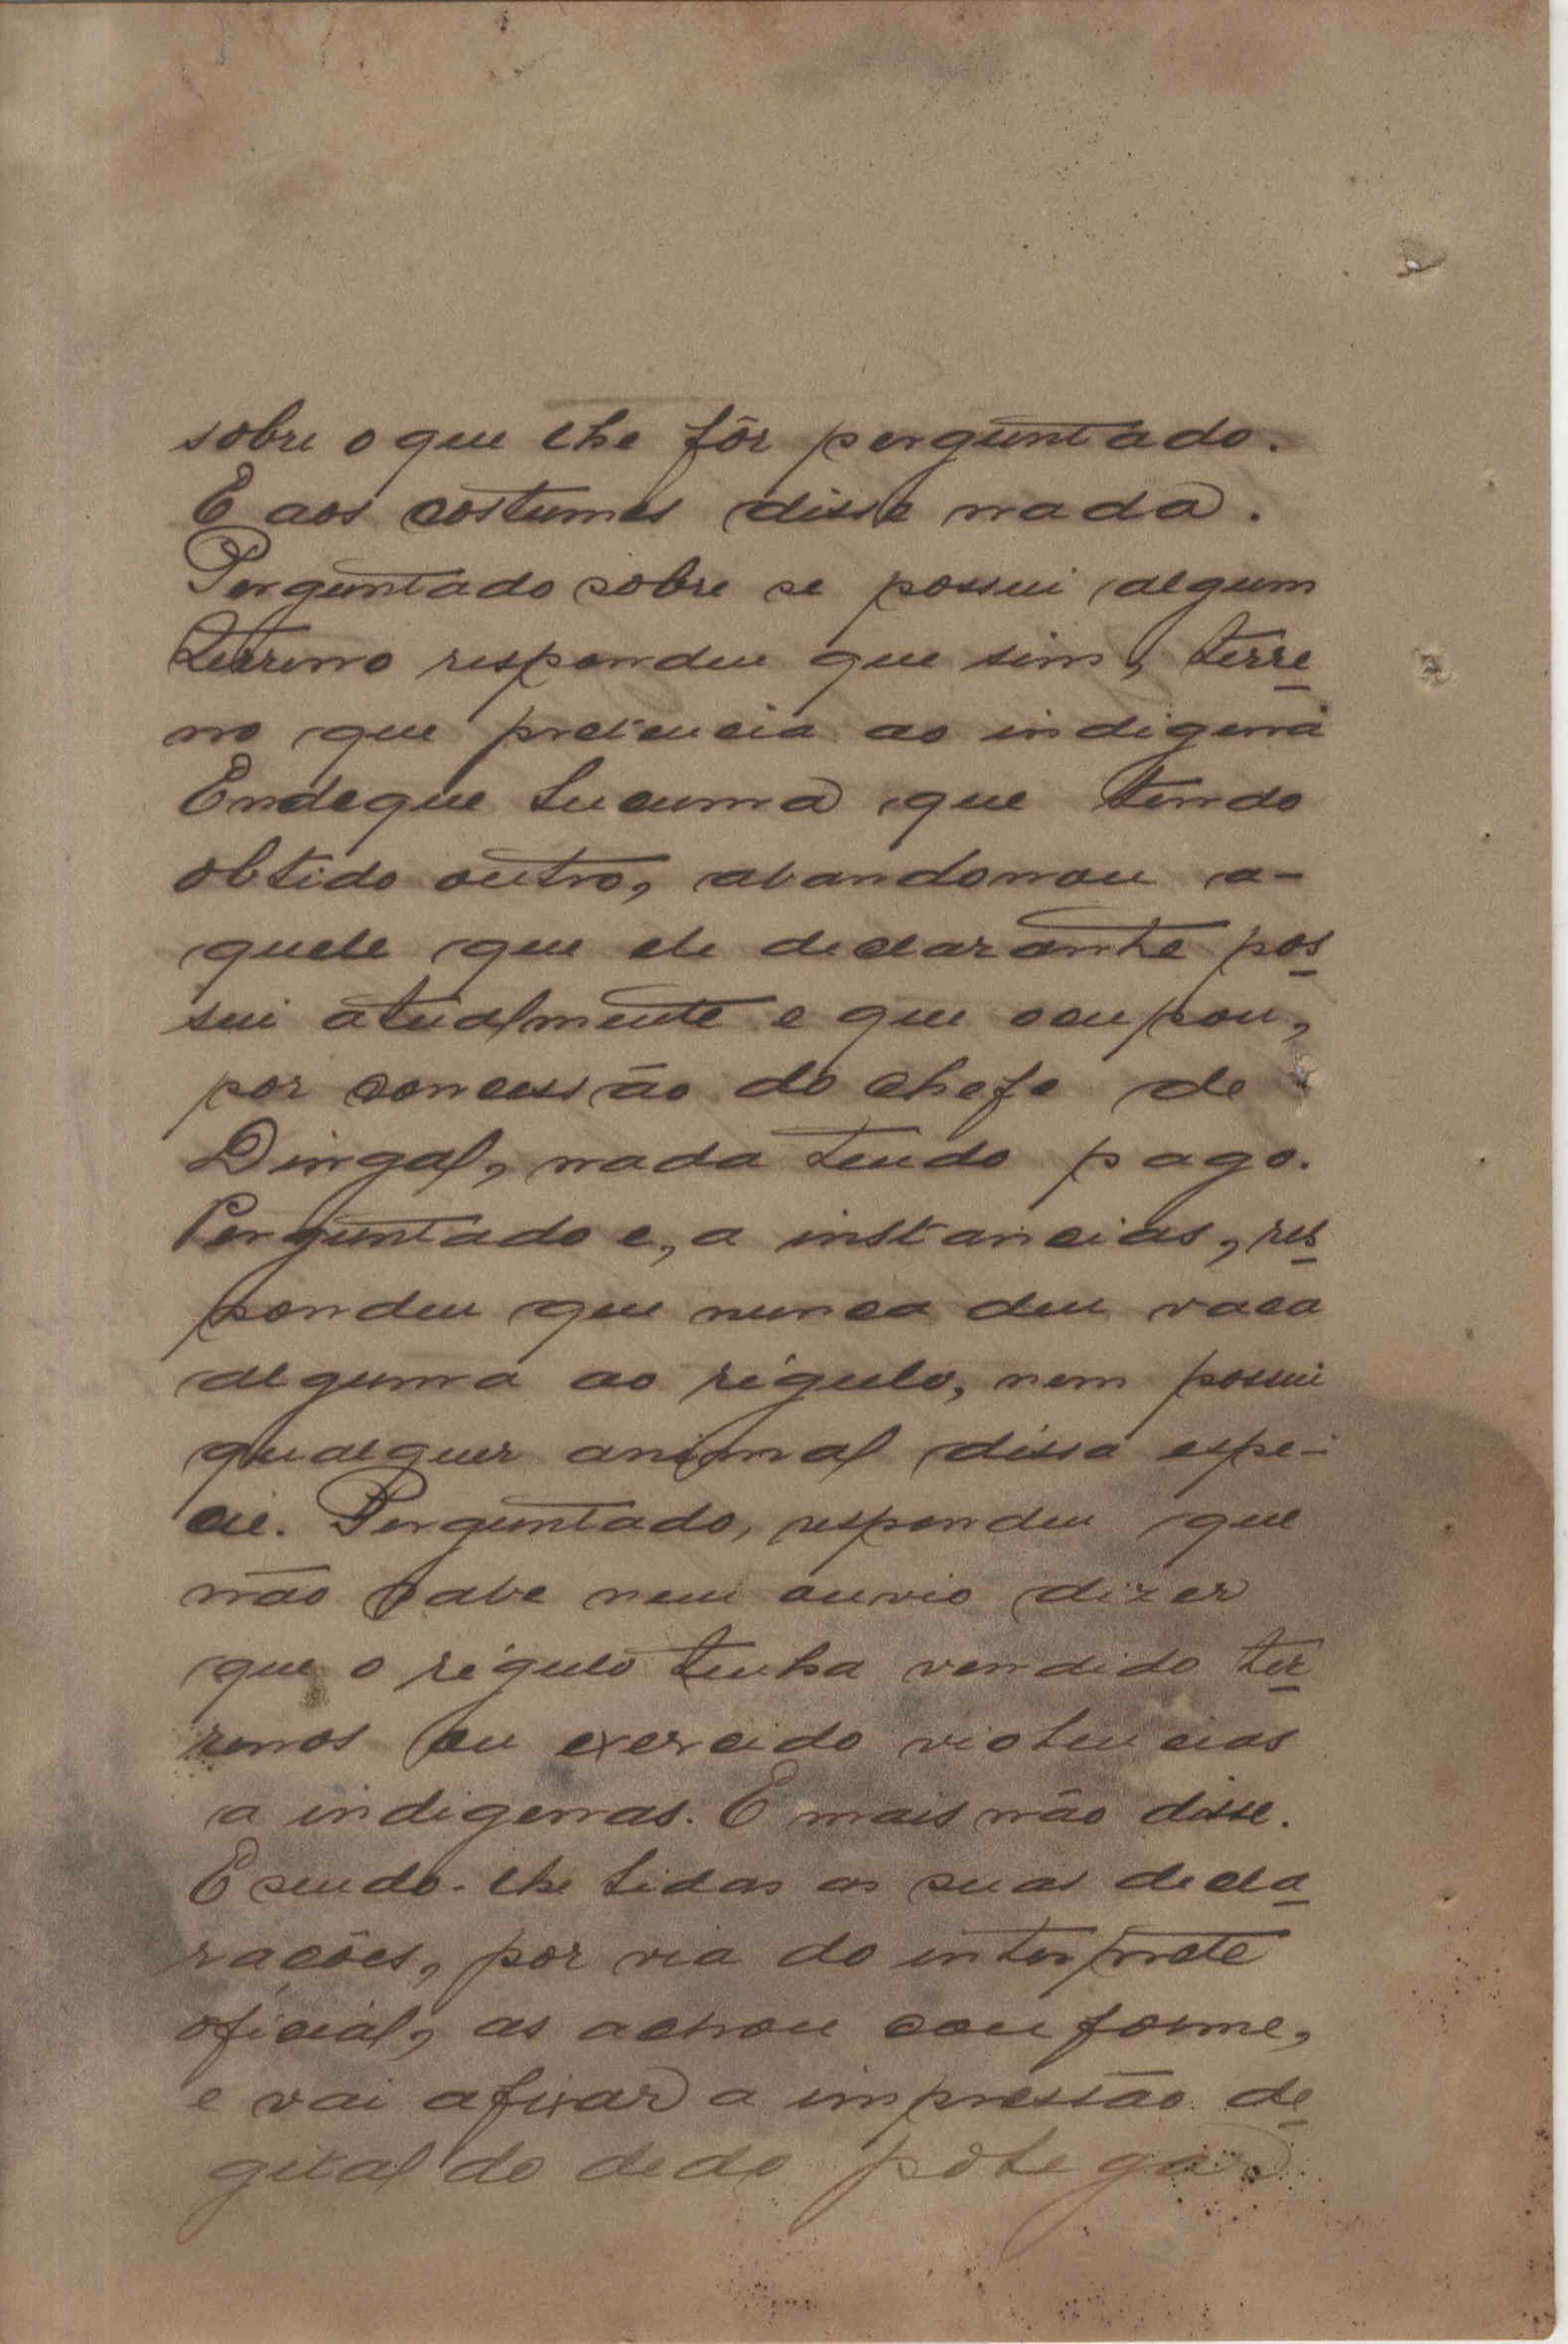 sobre o que lhe fôr perguntado.
E aos costumes disse nada.
Perguntado sobre se possui algum
terreno respondeu que sim, terre
no que pretencia ao indigena
Endeque Sucuma que tendo
obtido outro, abandonou a-
quele que ele declarante pos
sui atualmente e que ocupou,
por concessão do chefe de
Dingal, nada tendo pago.
Perguntado e, a instancias, res
pondeu que nunca deu vaca
alguma ao régulo, nem possui
qualquer animal dessa espe-
cie. Perguntado, respondeu que
não sabe nem ouvio dizer
que o régulo tenha vendido ter
renos ou exercido violencias
a indigenas. E mais não disse.
E sendo-lhe lidas as suas decla
rações, por via do interprete
oficial, as achou conforme,
e vai afixar a impressão de
gital do dedo polegar